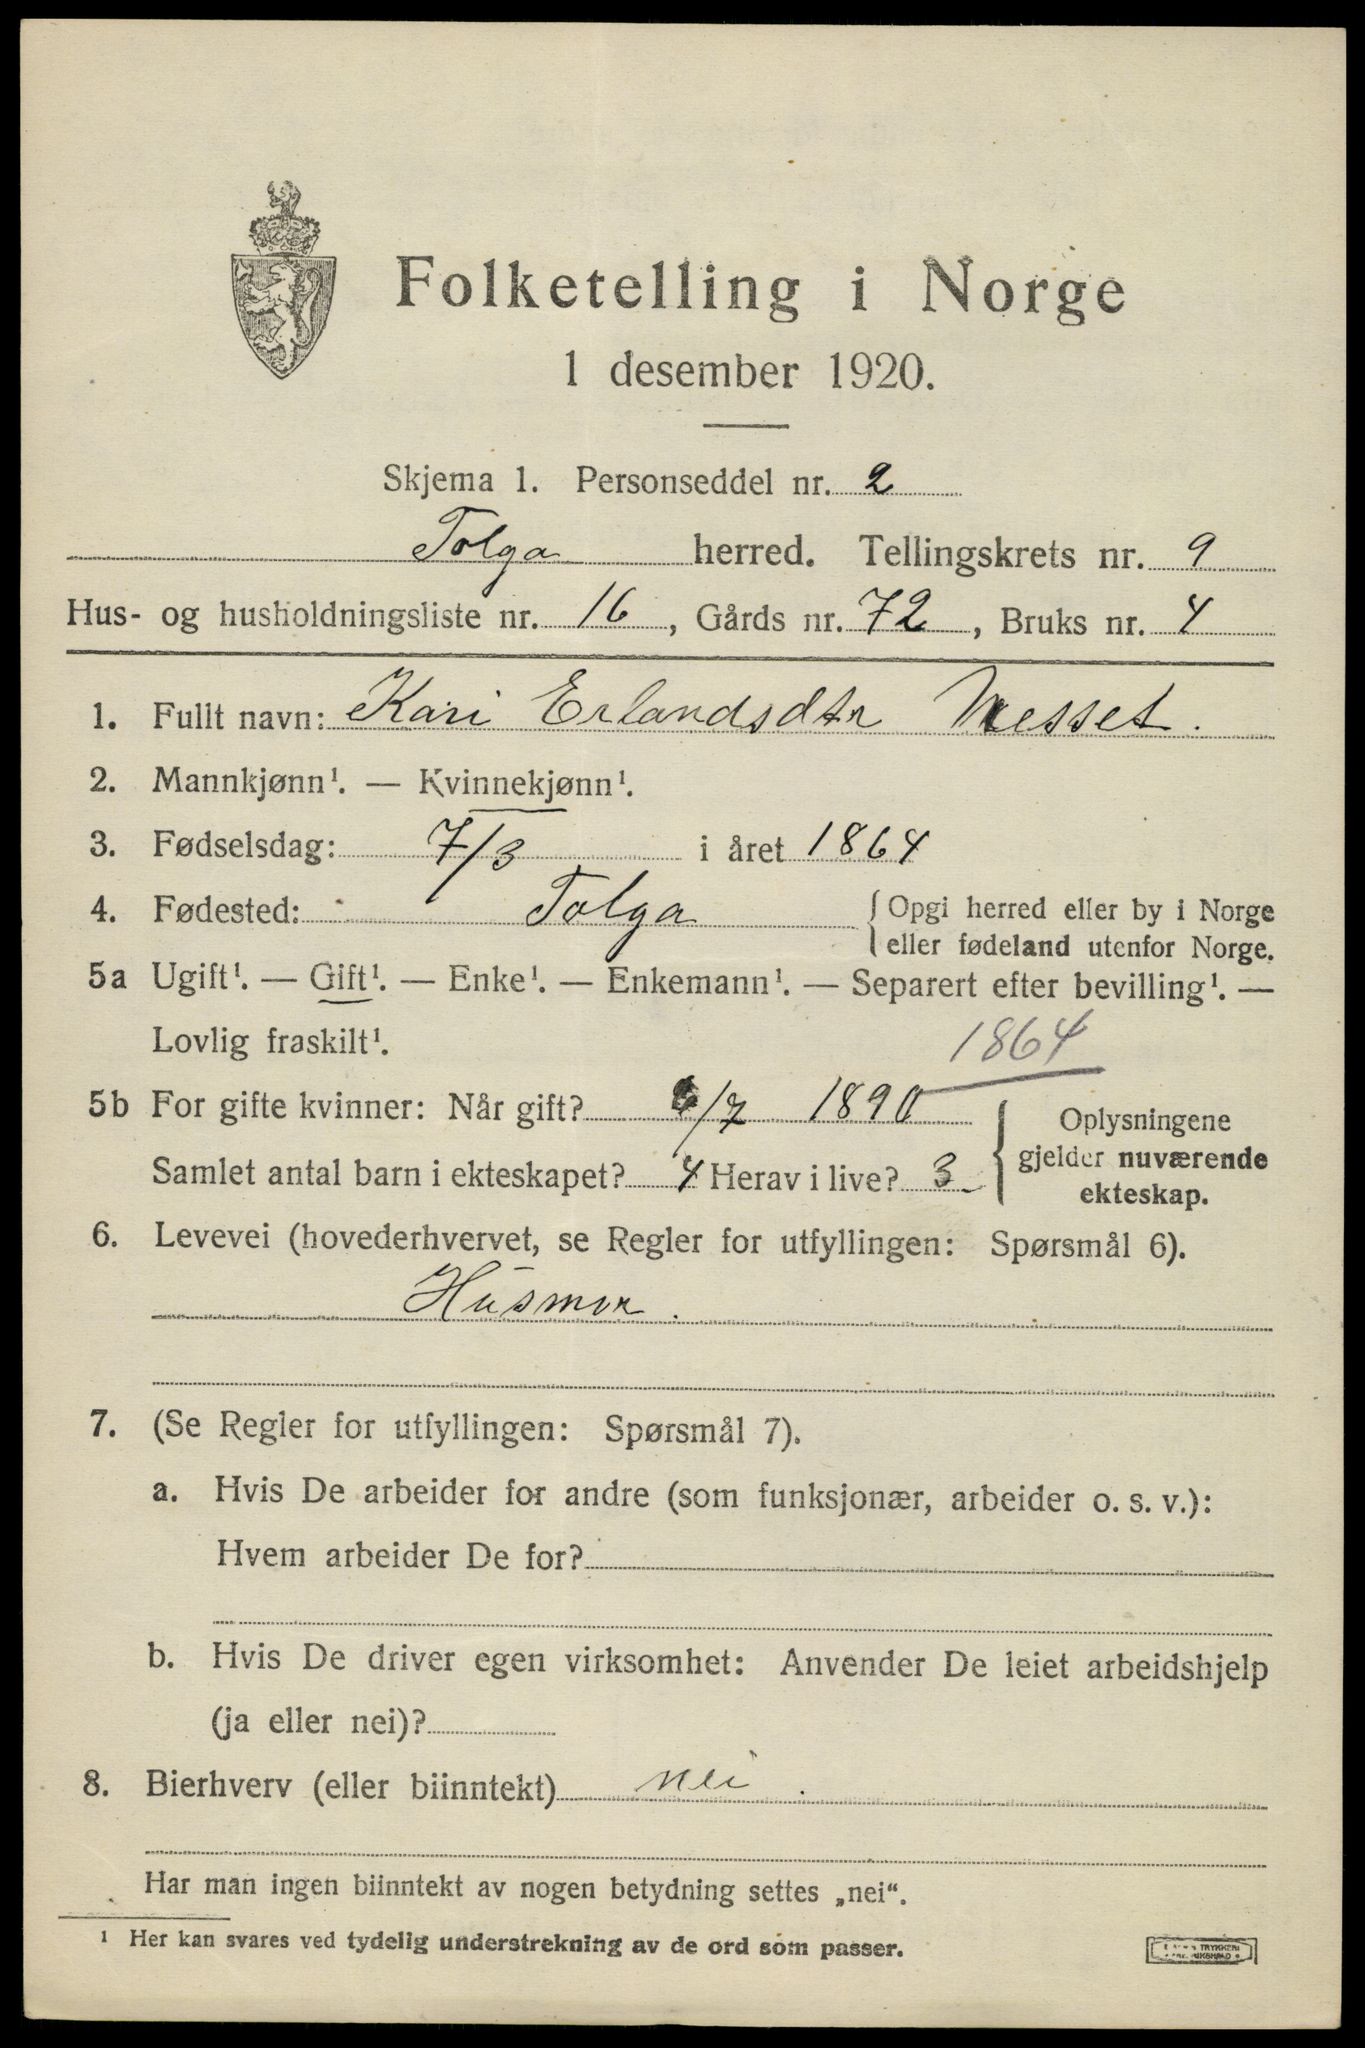 Folketelling i Norge
1 desember 1920.
Skjema 1. Personseddel nr. 2
Tolga herred. Tellingskrets nr. 9
Hus- og husholdningsliste nr. 16, Gårds nr. 72, Bruks nr. 4
1. Fullt navn: Kari Erlandsdtr Nesset.
2. Mannkjønn¹. — Kvinnekjønn¹.
3. Fødselsdag: 7/3 i året 1864
4. Fødested: Tolga { Opgi herred eller by i Norge
eller fødeland utenfor Norge.
5a Ugift¹. — Gift¹. — Enke¹. — Enkemann¹. — Separert efter bevilling¹. —
Lovlig fraskilt¹.
1864
5b For gifte kvinner: Når gift? /7 1890
Samlet antal barn i ekteskapet? 4 Herav i live? 3
Oplysningene
gjelder nuværende
ekteskap.
6. Levevei (hovederhvervet, se Regler for utfyllingen: Spørsmål 6).
Husmor.
7. (Se Regler for utfyllingen: Spørsmål 7).
a. Hvis De arbeider for andre (som funksjonær, arbeider o. s. v.):
Hvem arbeider De for?
b. Hvis De driver egen virksomhet: Anvender De leiet arbeidshjelp
(ja eller nei)?
8. Bierhverv (eller biinntekt) nei.
Har man ingen biinntekt av nogen betydning settes „nei“.
¹ Her kan svares ved tydelig understrekning av de ord som passer.